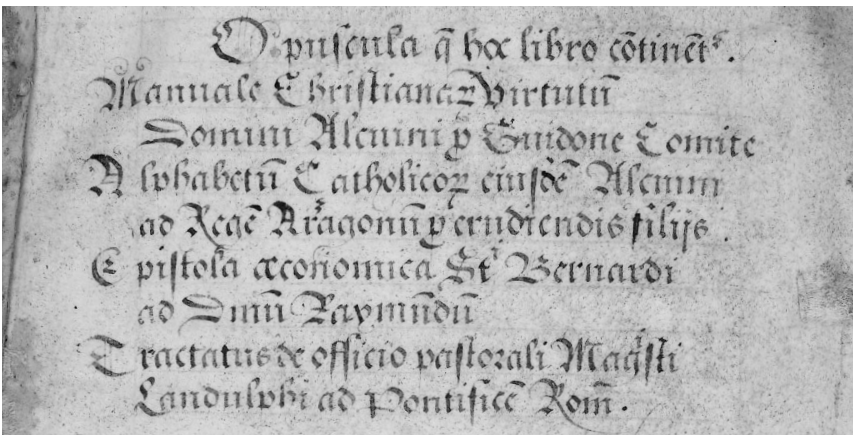 Opuscula q̃ hoc libro cõtinẽtᷣ.
Manuale Christianaꝝ Virtutũ
Domini Alcuini ꝓ Guidone Comite
Alphabetũ Catholicoꝝ eiusdẽ Alcuini
ad Regẽ Aragonũ ꝓ erudiendis filijs.
Epistola œconomica Sti Bernardi
ad Dmũ Raymũdũ
Tractatus de officio pastorali Magr̃sti
Landulphi ad Pontificẽ Rom̃.